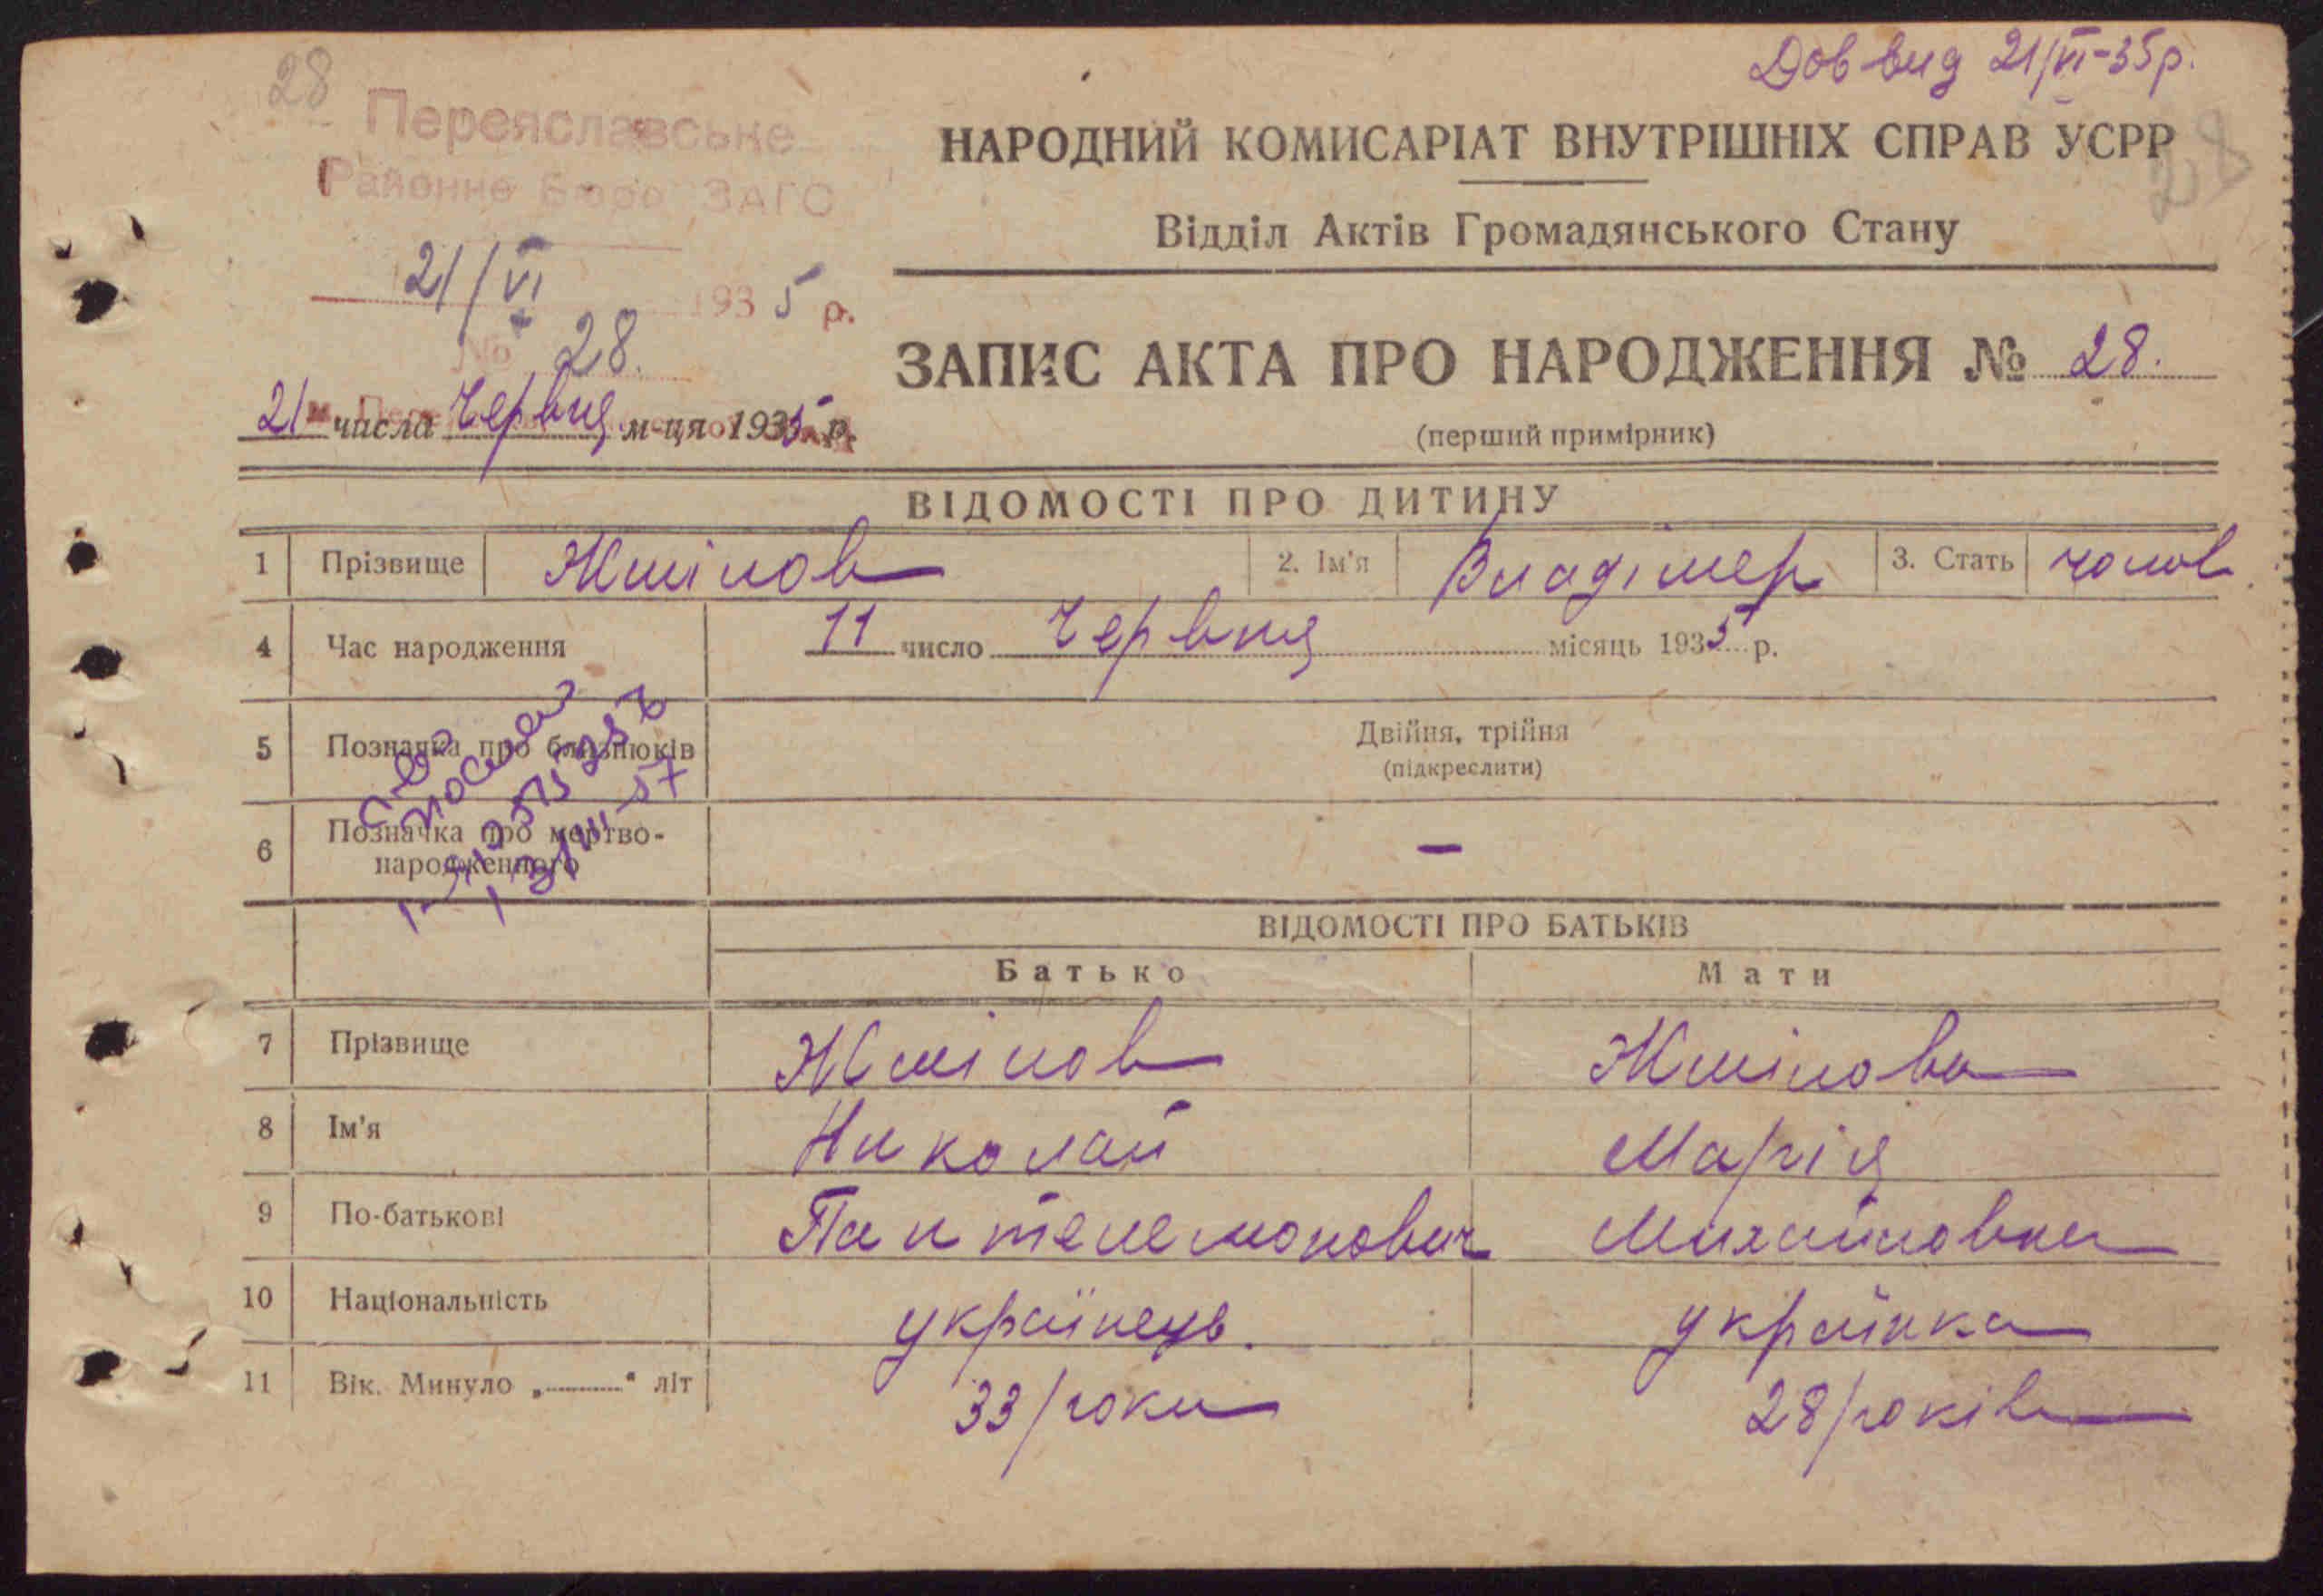 Дов вид 21/VI-35р.
28
Переяславське
Районне Бюро ЗАГС
21/VI 1935 р.
№ 28.
21 числа Червня м-ця 1935 р.
НАРОДНИЙ КОМИСАРІАТ ВНУТРІШНІХ СПРАВ УСРР
28
Відділ Актів Громадянського Стану
ЗАПИС АКТА ПРО НАРОДЖЕННЯ № 28.
(перший примірник)
ВІДОМОСТІ ПРО ДИТИНУ
1 Прізвище Жмілов 2. Ім'я Владімер 3. Стать чолов
4 Час народження 11 число Червня місяць 1935 р.
5 Позначка про близнюків Двійня, трійня
(підкреслити)
6 Позначка про мертво-
народженного —
ВІДОМОСТІ ПРО БАТЬКІВ
Батько Мати
7 Прізвище Жмілов Жмілова
8 Ім'я Николай Марія
9 По-батькові Пантелемонович Михайловна
10 Національність українець. українка
11 Вік. Минуло „............“ літ 33/роки 28/років